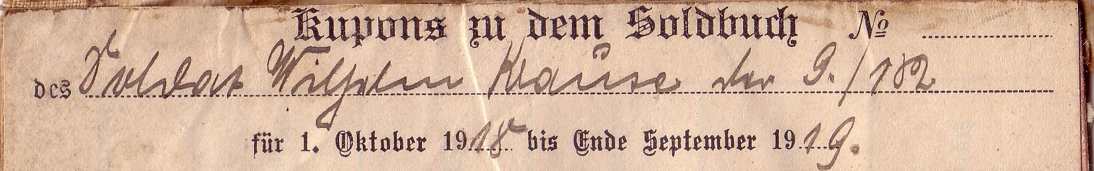 Kupons zu dem Soldbuch №
des Soldat Wilhelm Krause der 9./182
für 1. Oktober 1918 bis Ende September 1919.